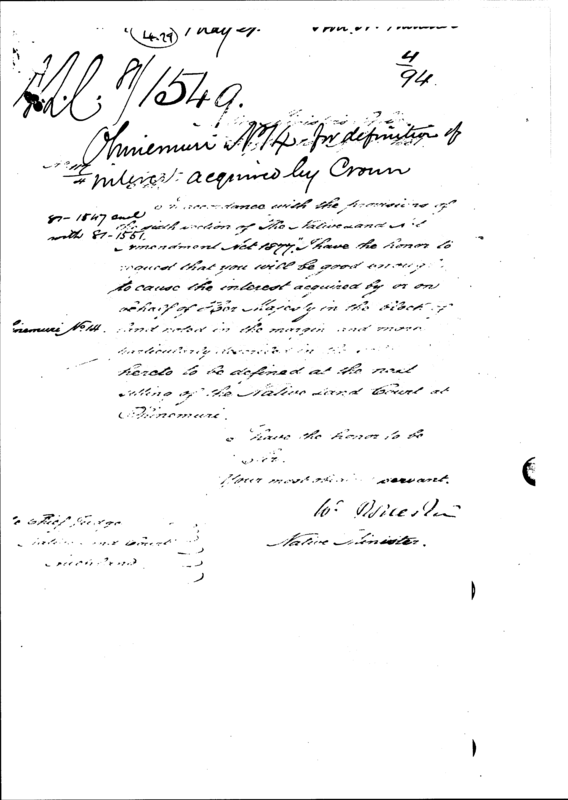 4.29
4
94.
N.L.C. 81/1549.
Ohinemuri No 14 for definition of
interest acquired by Crown
In accordance with the provisions of
81-1547 and
with 81-1551.
the sixth section of "The Native Land Act
Amendment Act 1877," I have the honor to
request that you will be good enough
to cause the interest acquired by or on
behalf of Her Majesty in the block of
Ohinemuri No 14.
land noted in the margin and more
particularly described in the
hereto to be defined at the next
sitting of the Native Land Court at
Ohinemuri.
I have the honor to be
Sir.
Your most obedient servant.
Wm
Native Minister.
The Chief Judge
Native Land Court
Auckland